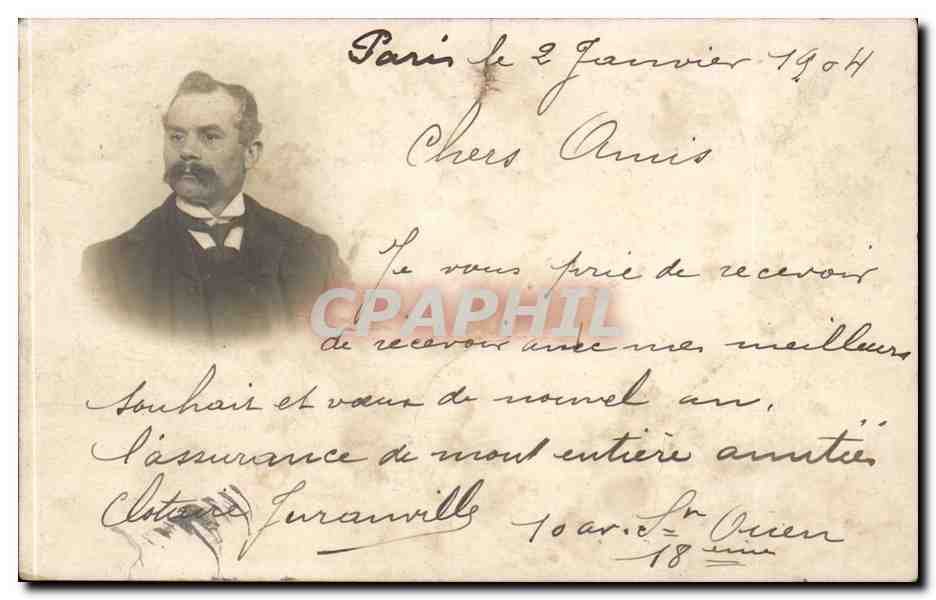 Paris le 2 Janvier 1904
Chers Amis
Je vous prie de recevoir
CPAPHIL
de recevoir avec mes meilleurs
souhait et vœux de nouvel an,
l'assurance de mont entière amitiés
Clotaire Juranville
10 av. St Ouen
18ème